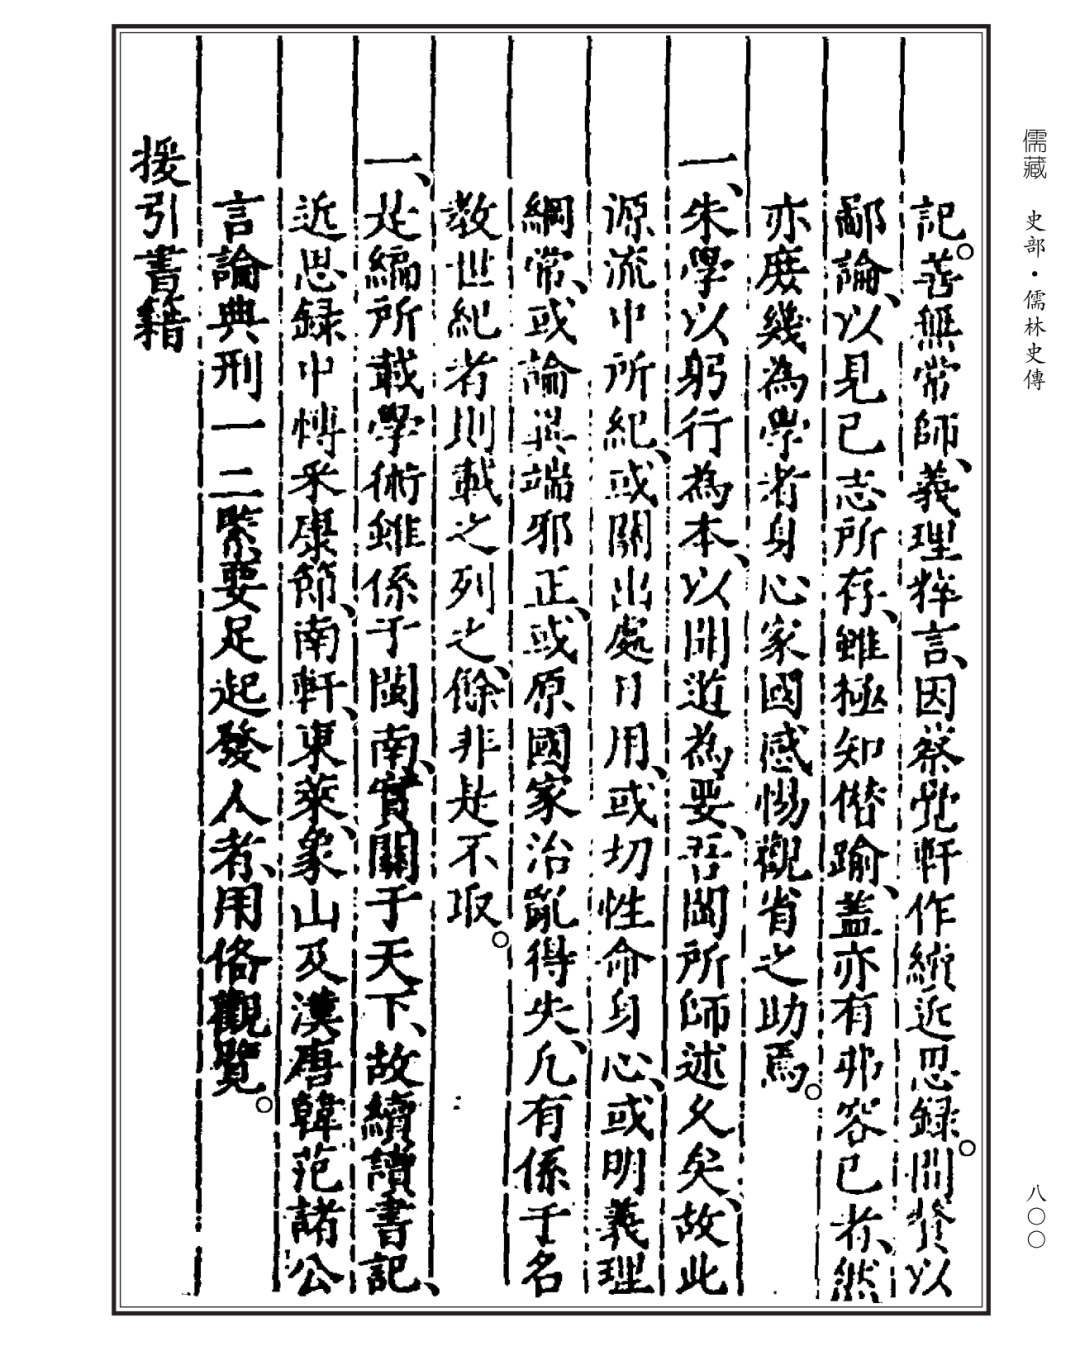 儒藏 史部・儒林史傳
記。善無常師、義理粹言、因蔡覺軒作續近思録。間贅以
鄙論、以見己志所存、雖極知僭踰、蓋亦有非容已者、然
亦庶幾為學者身心家國感惕觀省之助焉。
一、朱學以躬行為本、以聞道為要、吾閩所師述久矣、故此
源流中所紀、或關出處日用、或切性命身心、或明義理
綱常、或論異端邪正、或原國家治亂得失、凡有係于名
教世紀者則載之列之、餘非是不取。
一、是編所載學術雖係于閩南、實關于天下、故續讀書記、
近思録中愽采康節、南軒、東萊、象山及漢唐韓范諸公
言論典刑一二緊要足起發人者、用俻觀覽。
援引書籍
八〇〇